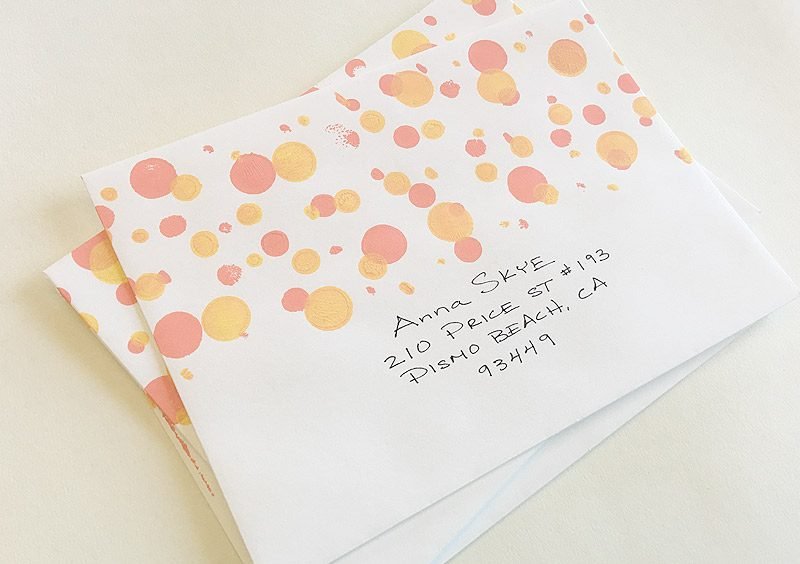 Anna SKYE
210 PRICE ST #193
PISMO BEACH, CA
93449